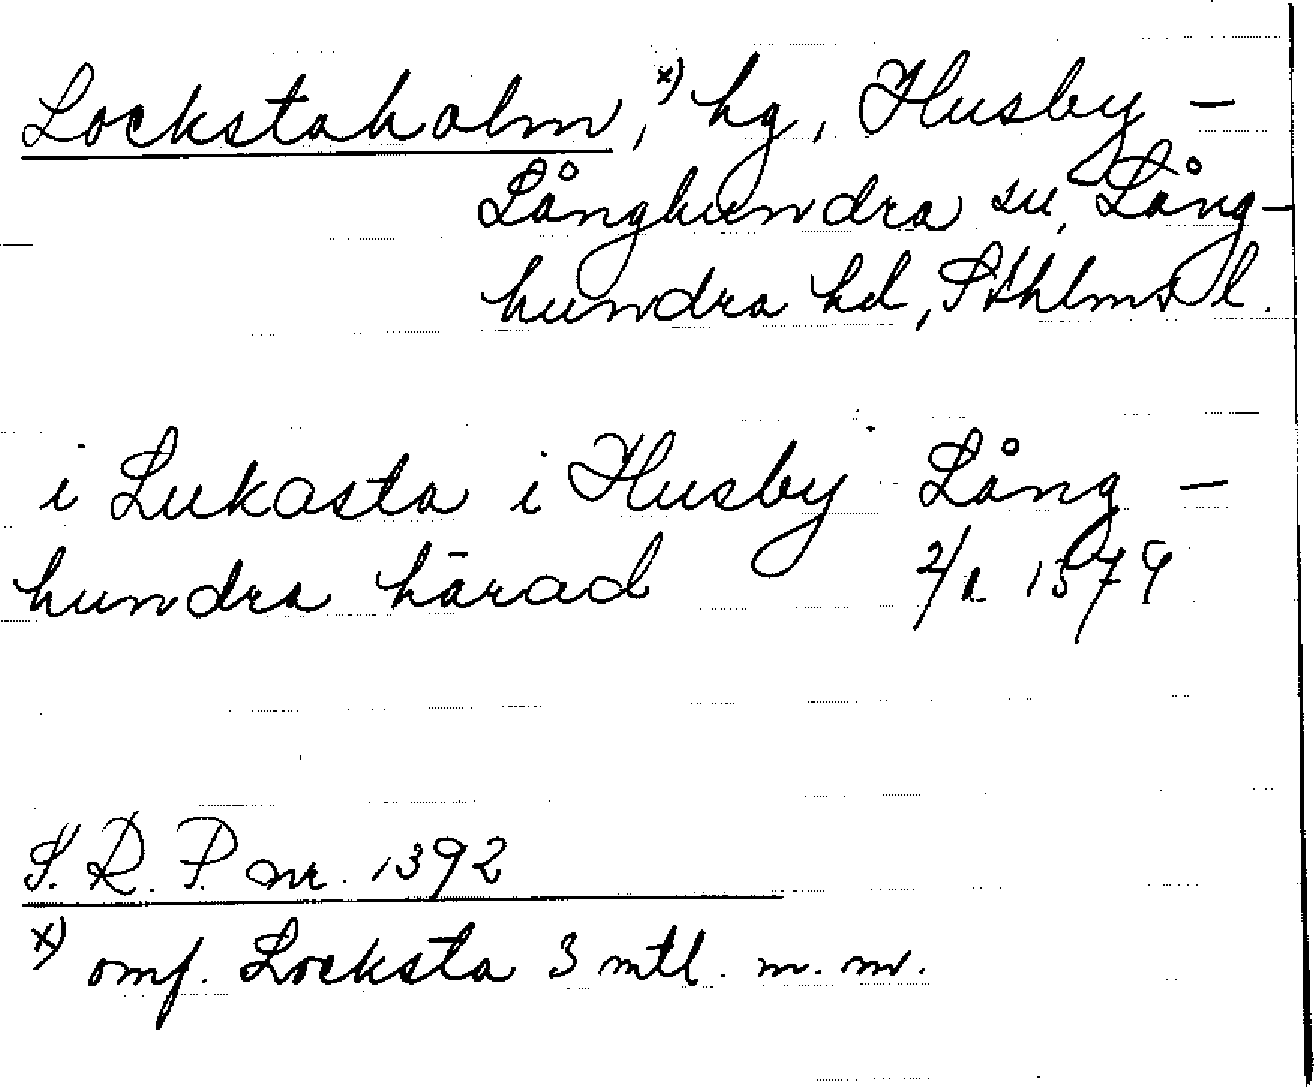 Lockstaholm, x) hg, Husby –
Långhundra sn, Lång–
hundra hd, Sthlms l.
i Lukasta i Husby Lång –
hundra härad 2/1 1379
S. R. P. nr. 1392
x) omf. Locksta 3 mtl. m. m.